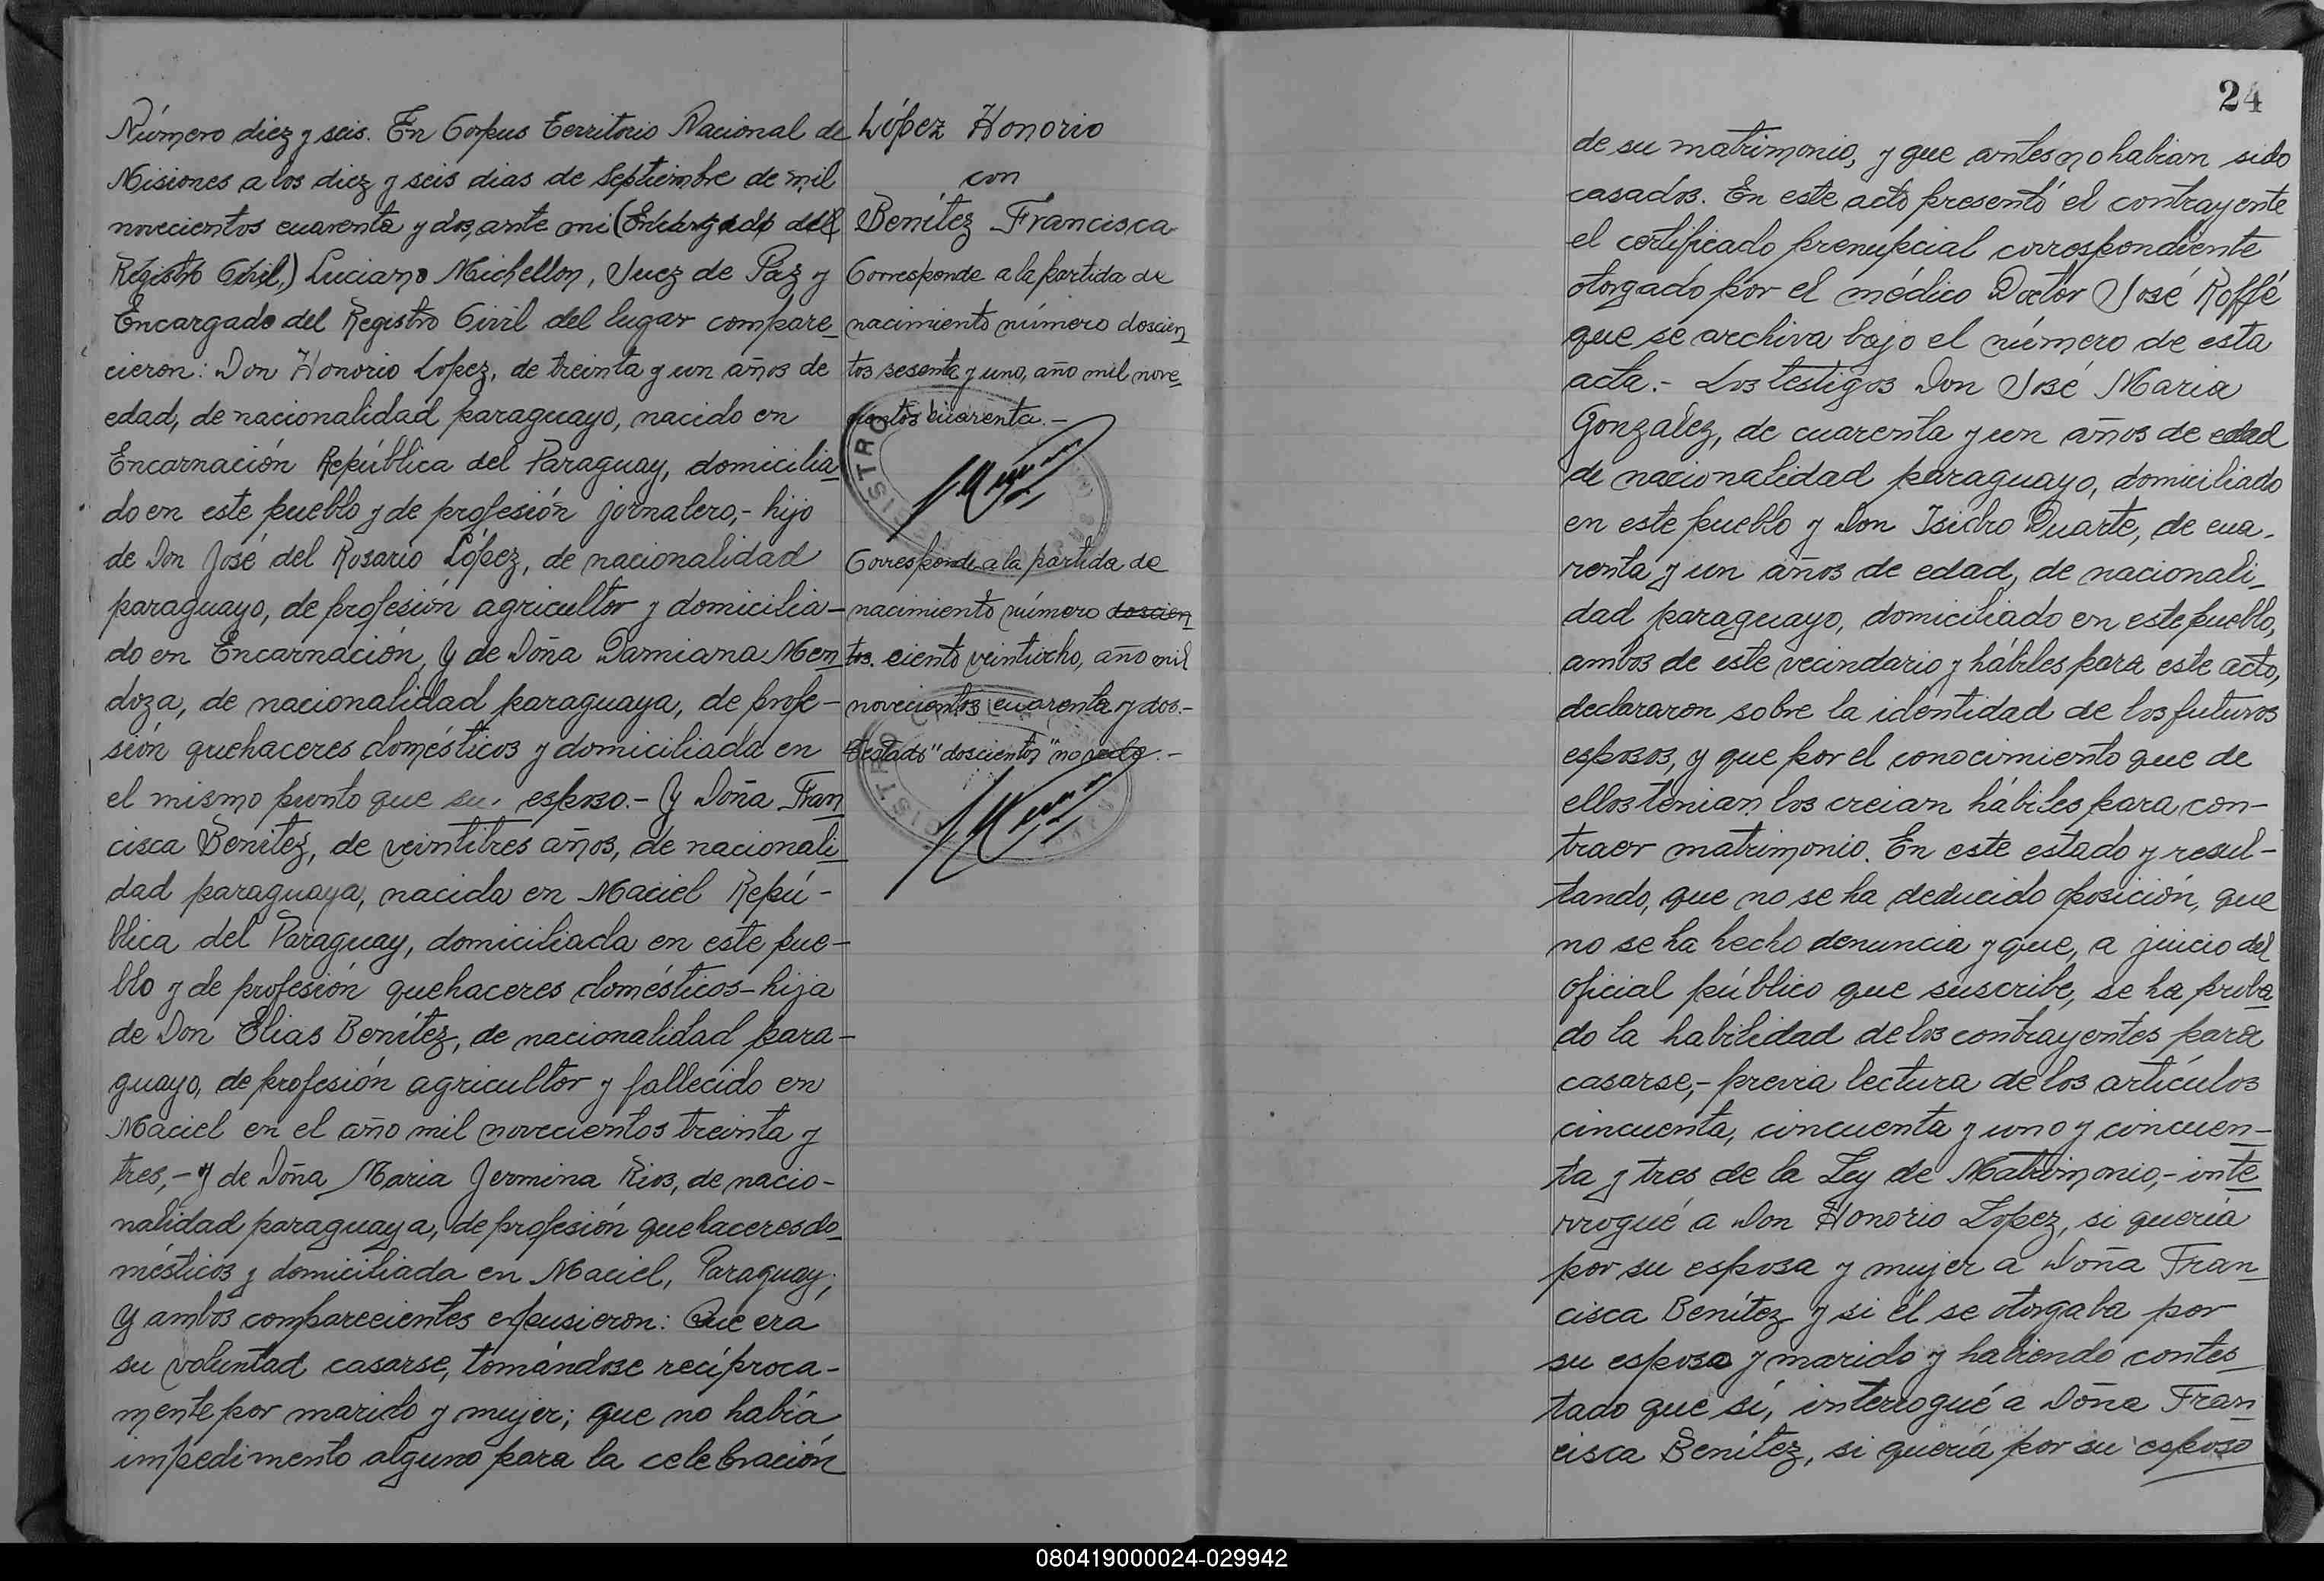 Número diez y seis. En Corpus Territorio Nacional de
Misiones a los diez y seis dias de Septiembre de mil
novecientos cuarenta y dos, ante mi (Encargado del
Registro Civil,) Luciano Michellon, Juez de Paz y
Encargado del Registro Civil del lugar compare_
cieron: Don Honorio Lopez, de treinta y un años de
edad, de nacionalidad paraguayo, nacido en
Encarnación República del Paraguay, domicilia_
do en este pueblo y de profesión jornalero,- hijo
de Don José del Rosario López, de nacionalidad
paraguayo, de profesión agricultor y domicilia-
do en Encarnación, Y de Doña Damiana Men_
doza, de nacionalidad paraguaya, de profe-
sión quehaceres domésticos y domiciliada en
el mismo punto que su esposo.- Y Doña Fran_
cisca Benítez, de veintitres años, de nacionali_
dad paraguaya, nacida en Maciel Repú-
blica del Paraguay, domiciliada en este pue-
blo y de profesión quehaceres domésticos-hija
de Don Elias Benítez, de nacionalidad para-
guayo, de profesión agricultor y fallecido en
Maciel en el año mil novecientos treinta y
tres,- y de Doña Maria Jermina Rios, de nacio-
nalidad paraguaya, de profesión quehaceres do_
mésticos y domiciliada en Maciel, Paraguay;
Y ambos comparecientes expusieron: Que era
su voluntad casarse, tomándose recíproca-
mente por marido y mujer; que no había
impedimento alguno para la celebración
López Honorio
con
Benítez Francisca
Corresponde a la partida de
nacimiento número doscien_
tos sesenta y uno, año mil nove_
cientos cuarenta.-
Corresponde a la partida de
nacimiento número doscien_
tos. ciento veintiocho, año mil
novecientos cuarenta y dos.-
Testado "doscientos" no vale.-
24
de su matrimonio, y que antes no habian sido
casados. En este acto presentó el contrayente
el certificado prenupcial correspondiente
otorgado por el médico Doctor José Roffé
que se archiva bajo el número de esta
acta.- Los testigos Don José Maria
Gonzalez, de cuarenta y un años de edad
de nacionalidad paraguayo, domiciliado
en este pueblo y Don Isidro Duarte, de cua-
renta y un años de edad, de nacionali_
dad paraguayo, domiciliado en este pueblo,
ambos de este vecindario y hábiles para este acto,
declararon sobre la identidad de los futuros
esposos, y que por el conocimiento que de
ellos tenian los creian hábiles para con-
traer matrimonio. En este estado y resul-
tando, que no se ha deducido oposición, que
no se ha hecho denuncia y que, a juicio del
oficial público que suscribe, se ha proba_
do la habilidad de los contrayentes para
casarse,- previa lectura de los artículos
cincuenta, cincuenta y uno y cincuen-
ta y tres de la Ley de Matrimonio,- inte_
rrogué a Don Honorio Lopez, si quería
por su esposa y mujer a Doña Fran_
cisca Benítez y si él se otorgaba por
su esposo y marido y habiendo contes_
tado que sí, interrogué a Doña Fran_
cisca Benítez, si quería por su esposo
080419000024-029942